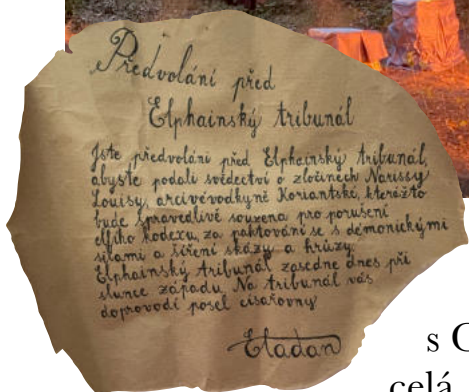 Předvolání před
Elphainský tribunál
Jste předvoláni před Elphainský tribunál,
abyste podali svědectví o zločinech Narissy
Louisy, arcivévodkyně Koriantské, kterážto
bude spravedlivě souzena pro porušení
elfího kodexu, za paktování se s démonickými
silami a šíření zkázy a hrůzy.
Elphainský tribunál zasedne dnes při
slunce západu. Na tribunál vás
doprovodí posel císařovny
Eladan
s
celá